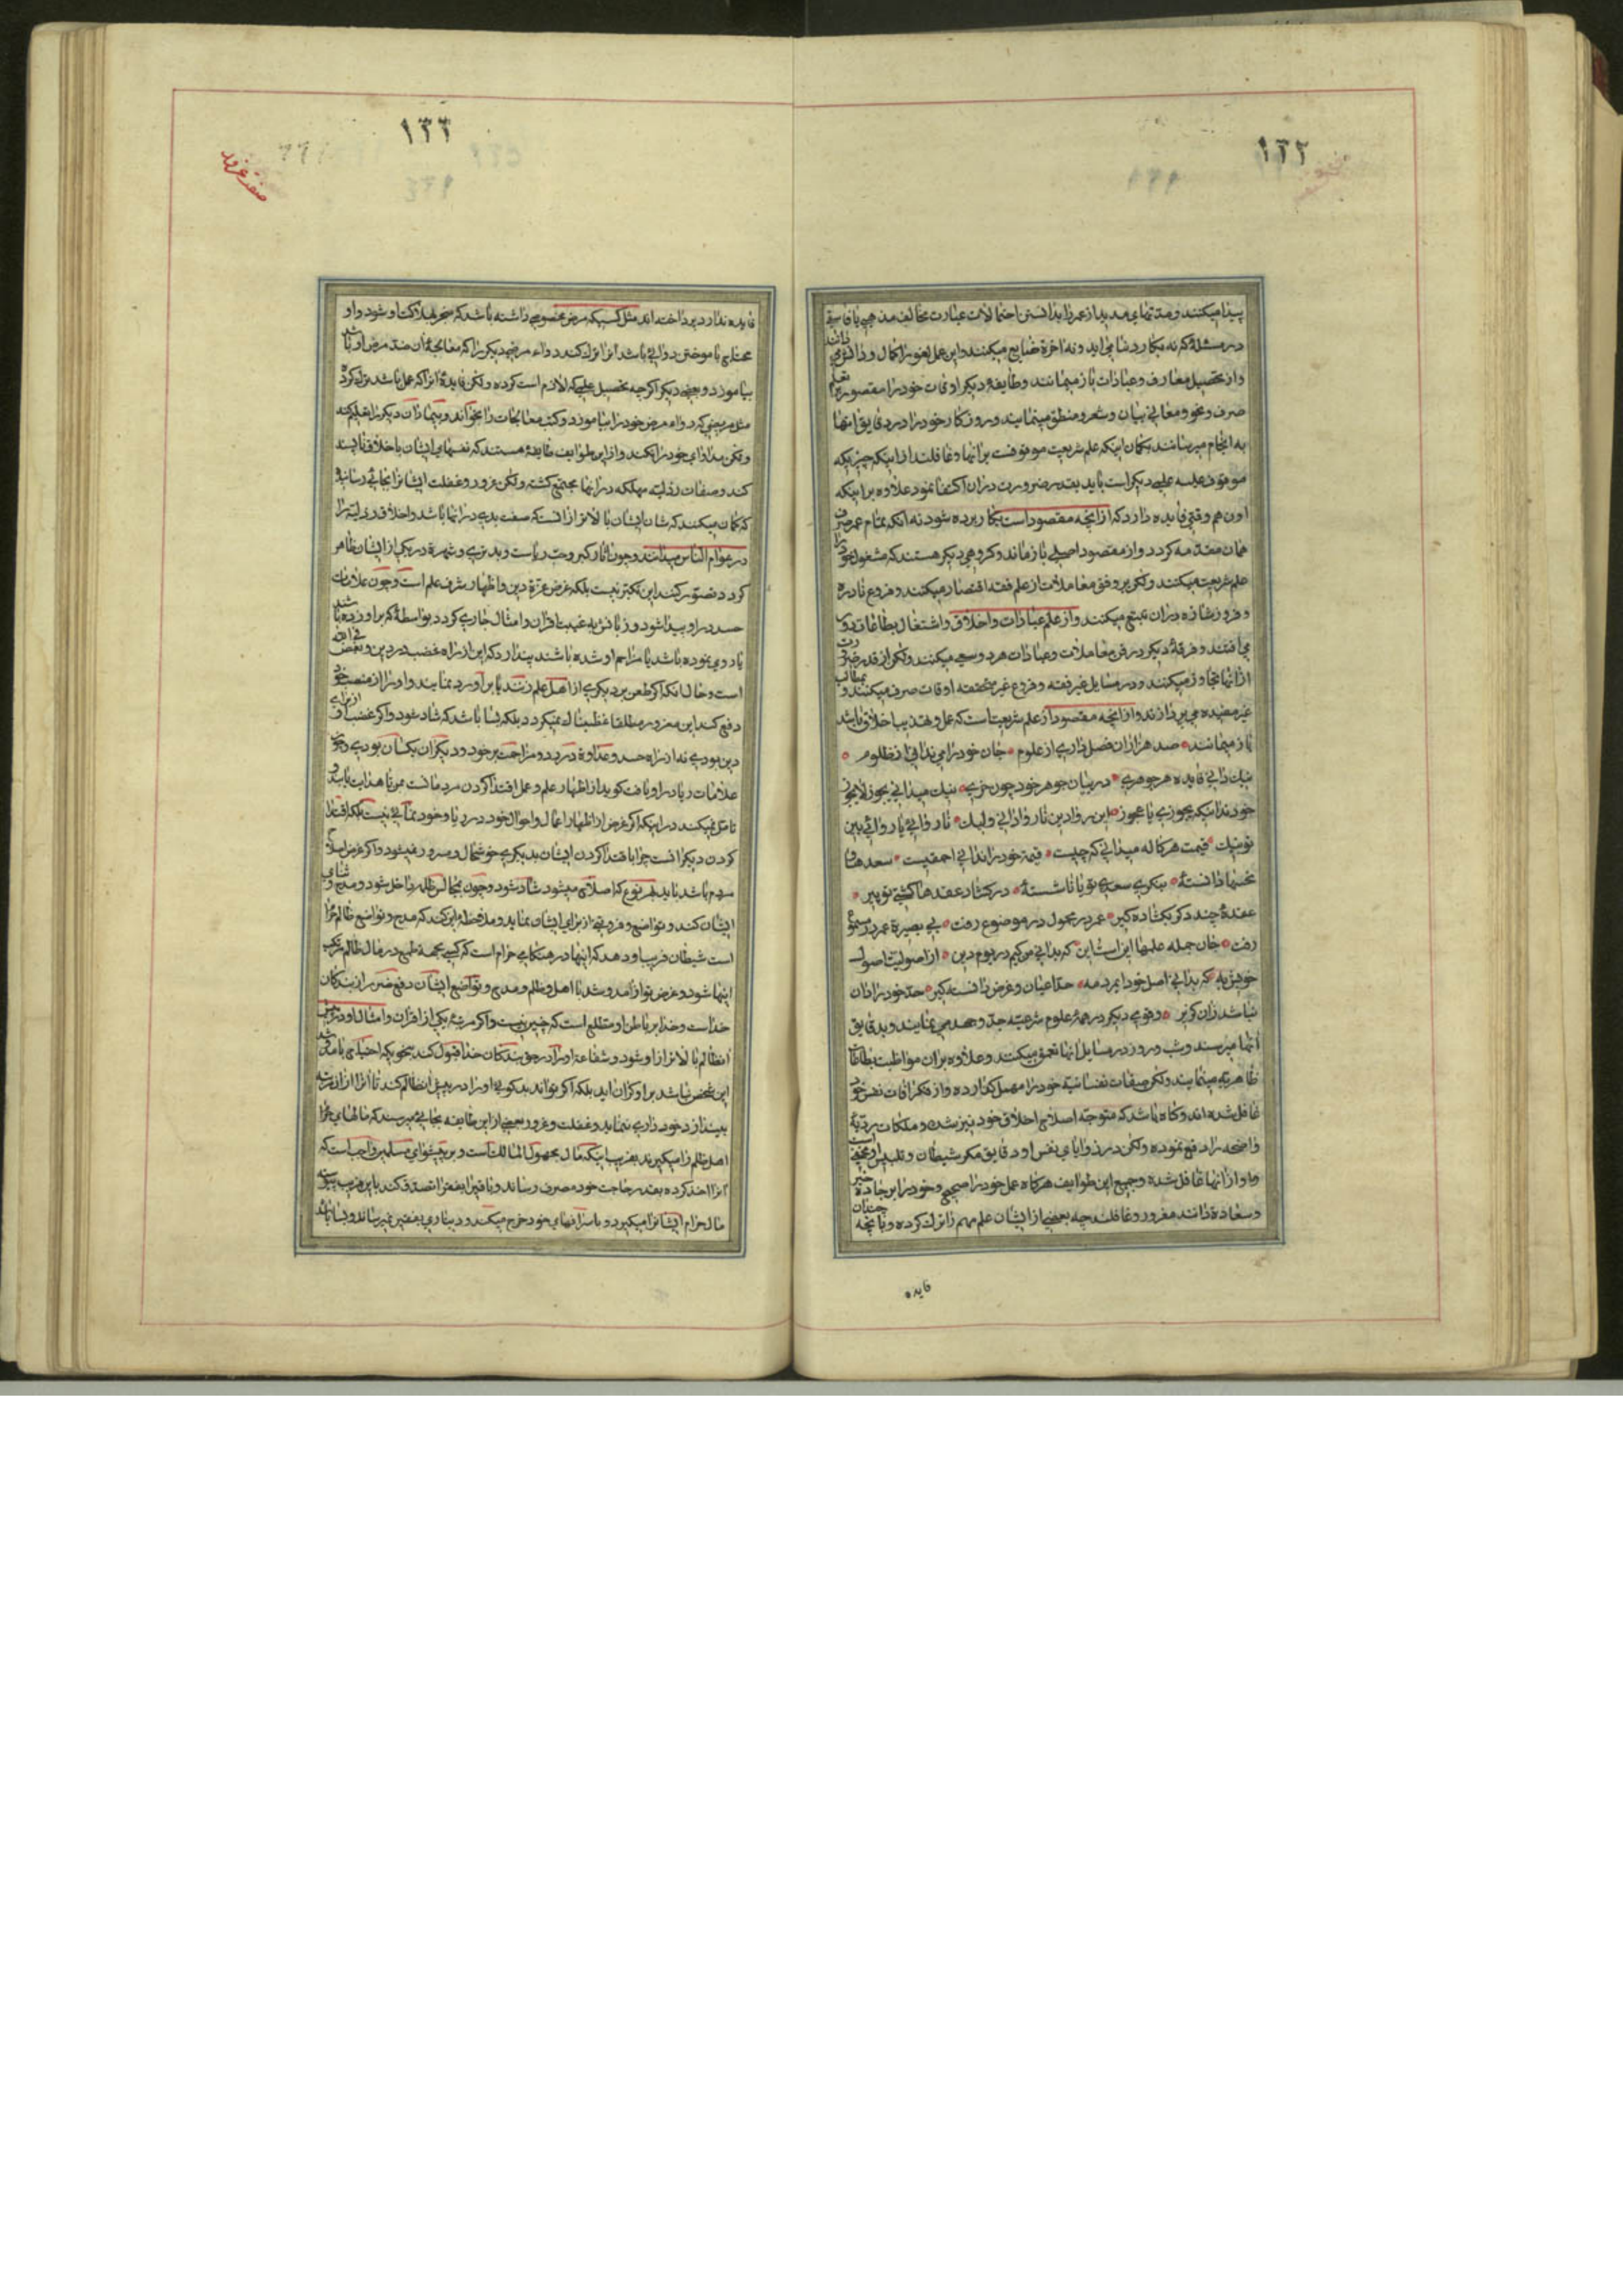 ۱۳۲
پیدا میکنند و مدتهای مدید از عمر را بدانستن احتمالات عبارت مخالف مذهبی یا فاسقی
در مسئلهٔ که نه بکار دنیا می اید و نه اخرة ضایع میکنند و این عمل لغو را کمال و ذاکر می دانند
و از تحصیل معارف و عبادات باز میمانند و طایفهٔ دیکر اوقات خود را مقصور بر تعلم
صرف و نحو و معانی بیان و شعر و منطق مینمایند و روزکار خود را در دقایق انها
به انجام میرسانند بکمان اینکه علم شریعت موقوفست بر انها و غافلند از اینکه چیزیکه
موقوف علیه علمی دیکر است باید بقدر ضرورت در ان اکتفا نمود علاوه بر اینکه
اون هم وقتی فایده دارد که از انچه مقصود است بکار برده شود نه انکه تمام عمر صرف
همان مقدمه کردد و از مقصود اصلی باز ماند و کروهی دیکر هستند که مشغول
علم شریعت میکنند و لکن بر وفق معاملات از علم فقه اقتصار میکنند و فروع نادره
و فروض شاذه در ان تتبع میکنند و از علم عبادات و اخلاق و اشتغال بطاعات دور
می افتند و فرقهٔ دیکر در فن معاملات و عبادات هر دو سعی میکنند و لکن از قدر ضرورت
از انها تجاوز میکنند و در مسایل غیر فقه و فروع غیر محققه اوقات صرف میکنند و بمطالب
غیر مفیده می پردازند و از انچه مقصود از علم شریعت است که عمل و تهذیب اخلاق باشد
باز میمانند صد هزاران فضل داری از علوم جان خود را می ندانی از ظلوم
نیک دانی فایده هر جوهری در بیان جوهر خود چون خری نیک میدانی یجوز لا یجوز
خود ندانی که یجوزی یا عجوز این روا دین ناروا دانی ولیک ناروائی یا روائی بین
تو نیک قیمت هر کاله میدانی که چیست قیمة خود را ندانی احمقیست سعدها و
نحسها دانستهٔ ننکری سعدی تو یا ناشستهٔ در کشاد عقدها کشتی تو پیر
عقدهٔ چند دکر بکشاده کیر عمر در محمول در موضوع رفت بی بصیرة عمر در مسموع
رفت جان جمله علمها این است این که بدانی من کیم در یوم دین از اصولیت اصول
خویش به که بدانی اصل خود ای مرد مه حد اعیان و عرض دانسته کیر حد خود را دان
نباشد زان کزیر و قومی دیکر در همهٔ علوم شرعیه جد و جهد می نمایند و بدقایق
انها میرسند و شب و روز در مسایل انها تعمق میکنند و علاوه بر ان مواظبت بطاعات
ظاهریه مینمایند و لکن صفات نفسانیهٔ خود را مهمل کذارده و از مکر افات نفس خود
غافل شده اند و کاه باشد که متوجه اصلاح اخلاق خود نیز شده و ملکات ردیهٔ
واضحه را دفع نموده و لکن در زوایای نفس او دقایق مکر شیطان و تلبیس او مخفی است
و او از انها غافل شده و جمیع این طوایف هرکاه عمل خود را صحیح و خود را بر جادهٔ خیر
و سعادة دانند مغرور و غافلند چه بعضی از ایشان علم مهم را ترک کرده و بانچه چندان
فایده
۱۳۳
صفت غرور
فایده ندارد پرداخته اند مثل کسیکه مرض مخصوصی داشته باشد که منجر بهلاکت او شود و او
محتاج باموختن دوائی باشد انرا ترک کند دواء مرض دیکر را که معالجهٔ ان ضد مرض او باشد
بیاموزد و بعضی دیکر اکرچه تحصیل علمی که لازم است کرده و لکن فایدهٔ انرا که عمل باشد ترک کرده
مثل مریضی که دواء مرض خود را بیاموزد و کتب معالجات را بخواند و بیماران دیکر را تعلیم کند
و لکن مداوای خود را نکند و از این طوایف طایفهٔ هستند که نفسهای ایشان باخلاق ناپسند
کند و صفات رذلیه مهلکه در انها مجتمع کشته و لکن غرور و غفلت ایشانرا بجائی رسانیده
که کمان میکنند که شان ایشان بالاتر از انست که صفت بدی در انها باشد و اخلاق رذیله را
در عوام الناس میدانند و چون اثار کبر و حب ریاست و بدنری و شهرة در یکی از ایشان ظاهر
کردد تصور کند این تکبر نیست بلکه غرض عزة دین و اظهار شرف علم است و چون علامات
حسد در او پیدا شود و زبانش به غیبت اقران و امثال جاری کردد بواسطهٔ که بر او زده باشد
یا ردی نموده باشد یا مزاحم او شده باشند پندارد که این از راه غضب در دین و بغض فی الله
است و حال انکه اکر طعن بر دیکری از اهل علم زنند یا بر او رد نمایند و او را از منصب خود
دفع کنند این مغرور مطلقا غضبناک نمیکردد بلکه بسا باشد که شاد شود و اکر غضب او از برای
دین بودی نه از راه حسد و عداوة در رد و مزاحمت بر خود و دیکران یکسان بودی و چون
علامات ریا در او یافت کوید از اظهار علم و عمل اقتدا کردن مردمانست بمن تا هدایت یابند و
تامل نمیکند در اینکه اکر غرض از اظهار اعمال و احوال خود در ریا و خود نمائی نیست بلکه اقتدا
کردن دیکرانست چرا باقتدا کردن ایشان بدیکری خوشحال و مسرور نمیشود و اکر غرض اصلاح
مردم باشد باید بهر نوع که اصلاح میشود شاد شود و چون بمجالس ظلمه داخل شود و مدح و ثنای
ایشان کند و تواضع و فروتنی از برای ایشان نماید و ملاحظهٔ این کند که مدح و تواضع ظالم حرام
است شیطان فریب او دهد که اینها در هنکامی حرام است که کسی بجههٔ طمع در مال ظالم مرتکب
اینها شود و غرض تو از امد و شد با اهل ظلم و مدح و تواضع ایشان دفع ضرر از بندکان
خداست و خدا بر باطن او مطلع است که چنین نیست و اکر مرتبهٔ یکی از اقران و امثال او در پیش
انظالم بالاتر از او شود و شفاعة او را در حق بندکان خدا قبول کند بنحویکه احتیاج بامثال
این شخص نباشد بر او کران اید بلکه اکر تواند بدکوئی او را در پیش انظالم کند تا انرا از ان مرتبه
بیندازد خود داری ننماید و غفلت و غرور بعضی از این طایفه بجائی میرسند که مالهای حرام
اهل ظلم را میکیرند بفریب اینکه مال مجهول المالک است و بر پیشوای مسلمین واجب است که
انرا اخذ کرده بقدر حاجت خود مصرف رساند و باقی را بفقرا تصدق کند باین فریب پیوسته
مال حرام ایشانرا میکیرد و باسرافهای خود خرج میکند و دیناری بفقیر نمیرساند و بسا باشد